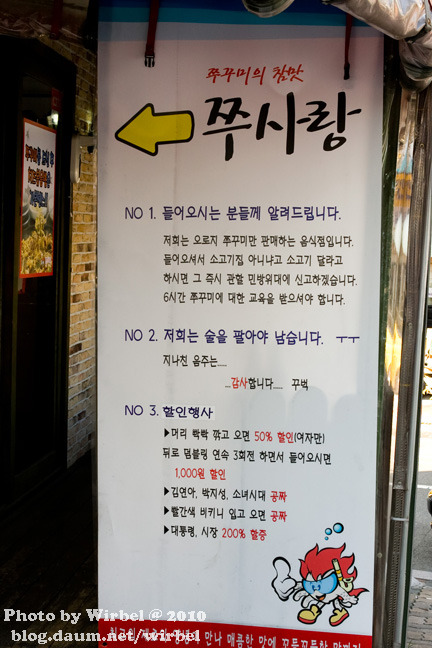 쭈꾸미의 참맛
쭈사랑
NO 1. 들어오시는 분들께 알려드립니다.
저희는 오로지 쭈꾸미만 판매하는 음식점입니다.
들어오셔서 소고기집 아니냐고 소고기 달라고
하시면 그 즉시 관할 민방위대에 신고하겠습니다.
6시간 쭈꾸미에 대한 교육을 받으셔야 합니다.
NO 2. 저희는 술을 팔아야 남습니다. ㅜㅜ
지나친 음주는....
...감사합니다.... 꾸벅
NO 3. 할인행사
▶머리 빡빡 깎고 오면 50% 할인(여자만)
뒤로 덤블링 연속 3회전 하면서 들어오시면
1,000원 할인
▶김연아, 박지성, 소녀시대 공짜
▶빨간색 비키니 입고 오면 공짜
▶대통령, 시장 200% 할증
Photo by Wirbel @ 2010
blog.daum.net/wirbel
만나 매콤한 맛에